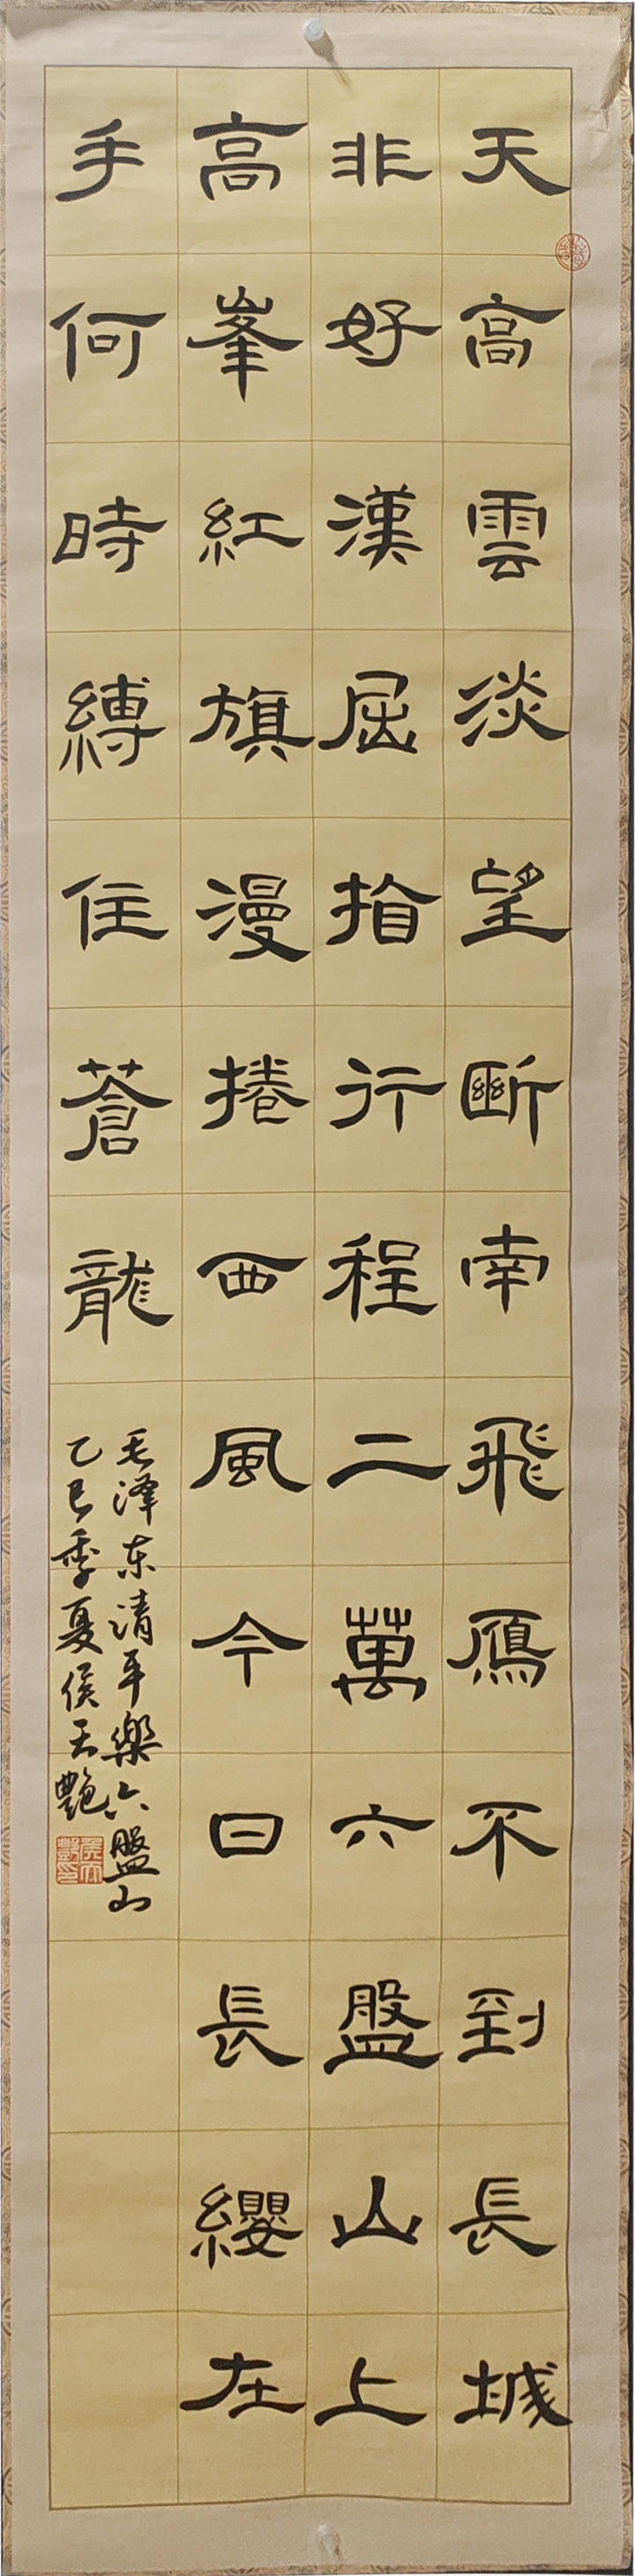 天高雲淡望斷南飛鴈不到長城
非好漢屈指行程二萬六盤山上
高峯紅旗漫捲西風今日長纓在
手何時縛住蒼龍
毛泽东清平樂六盤山
乙巳季夏侯天艷